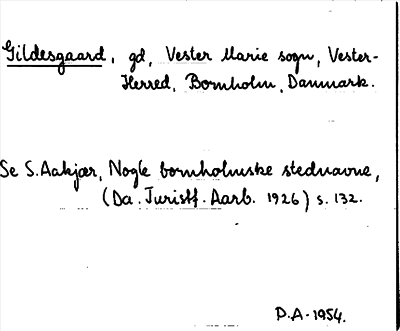 Gildesgaard, gd, Vester Marie sogn, Vester-
Herred, Bornholm, Danmark.
Se S. Aakjær, Nogle bornholmske stednavne,
(Da. Turistf. Aarb. 1926) s. 132.
P.A-1954.